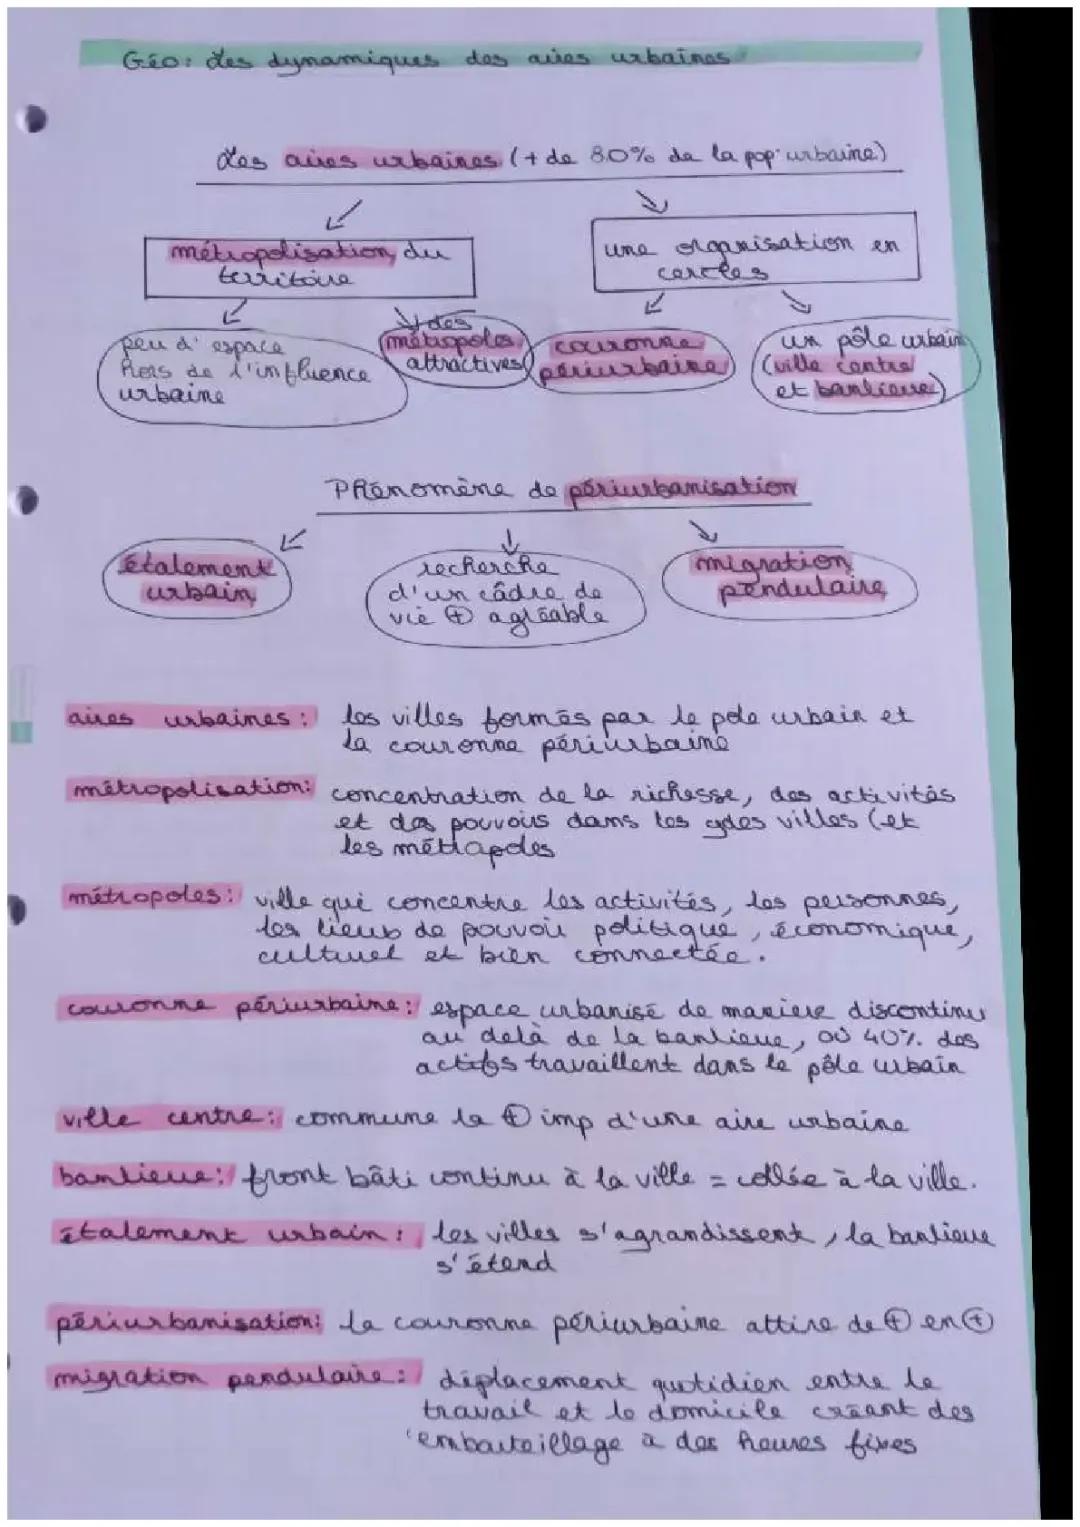 Géo: Les dynamiques des aires urbaines
Les aires urbaines (+ de 80% de la pop° urbaine)
métropolisation du
territoire
une organisation en
cercles
peu d'espace
hors de l'influence
urbaine
des
métropoles
attractives
couronne
périurbaine
un pôle urbain
(ville centre
et banlieue)
Phénomène de périurbanisation
étalement
urbain
recherche
d'un câdre de
vie ⊕ agréable
migration
pendulaire
aires urbaines: les villes formés par le pole urbain et
la couronne périurbaine
métropolisation: concentration de la richesse, des activités
et des pouvoirs dans les gdes villes (et
les métrapoles
métropoles: ville qui concentre les activités, les personnes,
les lieux de pouvoir politique, économique,
culturel et bien connectée.
couronne périurbaine: espace urbanisé de maniere discontinu
au delà de la banlieue, où 40% des
actifs travaillent dans le pôle urbain
ville centre: commune la ⊕ imp d'une aire urbaine
banlieue: front bâti continu à la ville = collée à la ville.
étalement urbain: les villes s'agrandissent, la banlieue
s'étend
périurbanisation: la couronne périurbaine attire de ⊕ en ⊕
migration pendulaire: déplacement quotidien entre le
travail et le domicile créant des
embouteillage à des heures fixes